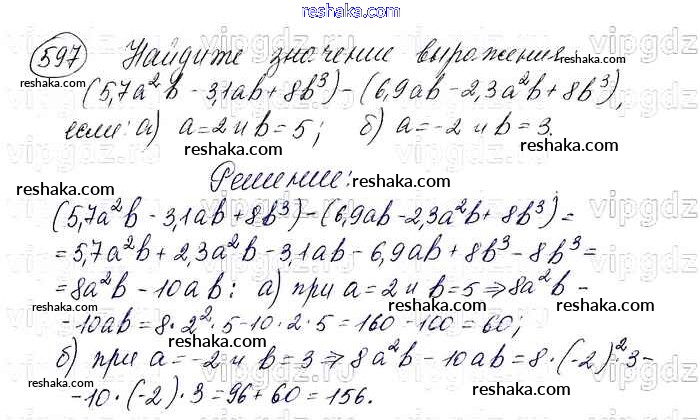 reshaka.com
597 Найдите значение выражения
reshaka.com
(5,7a²b - 3,1ab + 8b³) - (6,9ab - 2,3a²b + 8b³),
если: а) a = 2 и b = 5; б) a = -2 и b = 3.
reshaka.com reshaka.com
Решение:
reshaka.com reshaka.com
(5,7a²b - 3,1ab + 8b³) - (6,9ab - 2,3a²b + 8b³) =
= 5,7a²b + 2,3a²b - 3,1ab - 6,9ab + 8b³ - 8b³ =
= 8a²b - 10ab: а) при a = 2 и b = 5 ⇒ 8a²b -
reshaka.com reshaka.com
- 10ab = 8 · 2² · 5 - 10 · 2 · 5 = 160 - 100 = 60;
б) при a = -2 и b = 3 ⇒ 8a²b - 10ab = 8 · (-2)² · 3 -
reshaka.com reshaka.com
- 10 · (-2) · 3 = 96 + 60 = 156.
reshaka.com